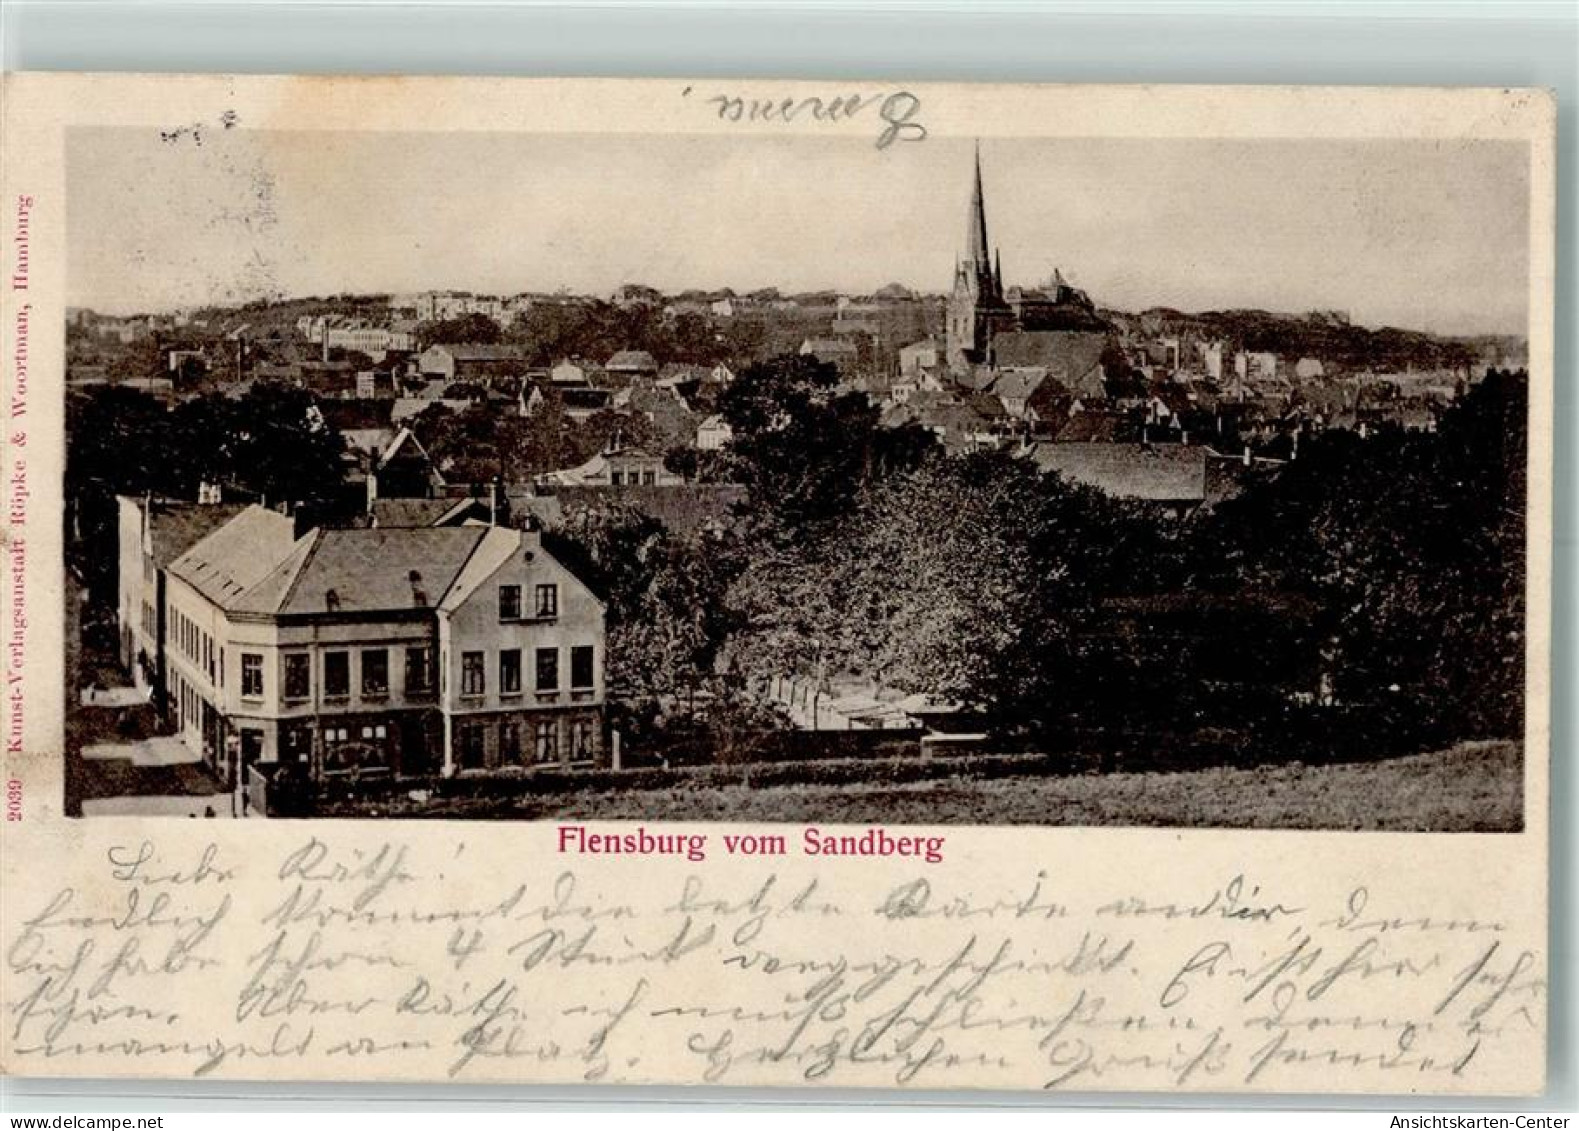 Emma.
2039 Kunst-Verlagsanstalt Röpke & Woortman, Hamburg
Flensburg vom Sandberg
Liebe Käthe!
Endlich kommt die letzte Karte an dir, denn
ich habe schon 4 Stück weggeschickt. Es ist hier sehr
schön. Aber Käthe ich muß schließen, denn es
mangelt an Platz. Herzlichen Gruß sendet
www.delcampe.net
Ansichtskarten-Center